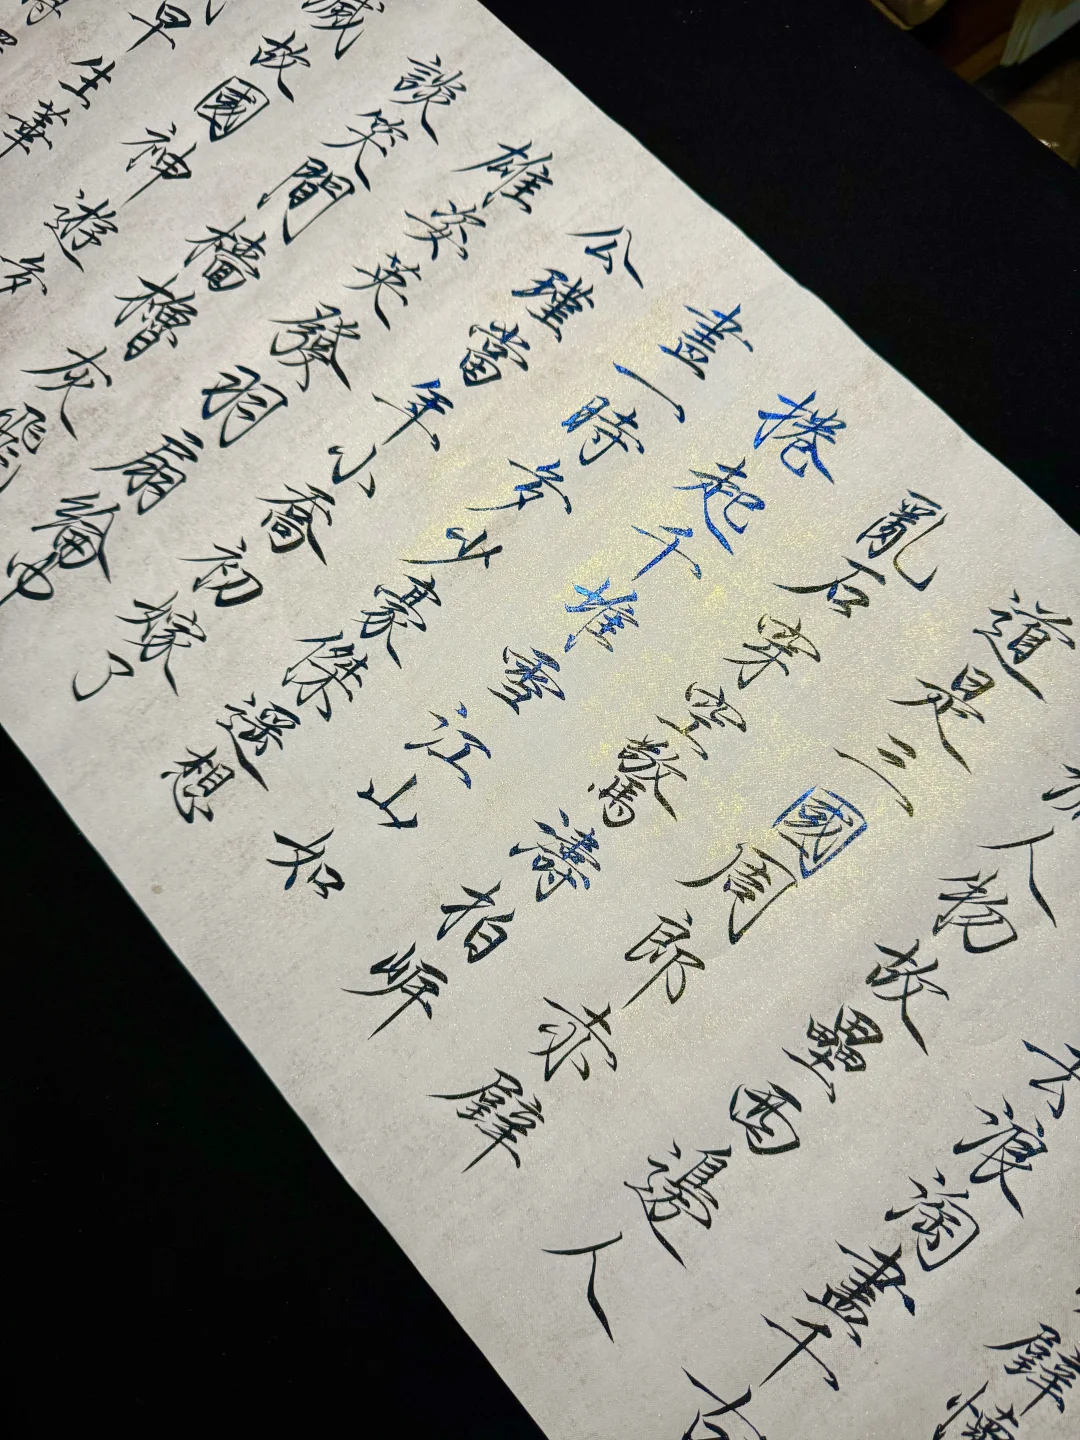 壁懷
去浪淘盡千古
人物故壘西邊人
道是三國周郎赤壁
亂石穿空驚濤拍岸
捲起千堆雪江山如
畫一時多少豪傑遙想
公瑾當年小喬初嫁了
雄姿英發羽扇綸巾
談笑間檣櫓灰飛
滅故國神遊多
早生華